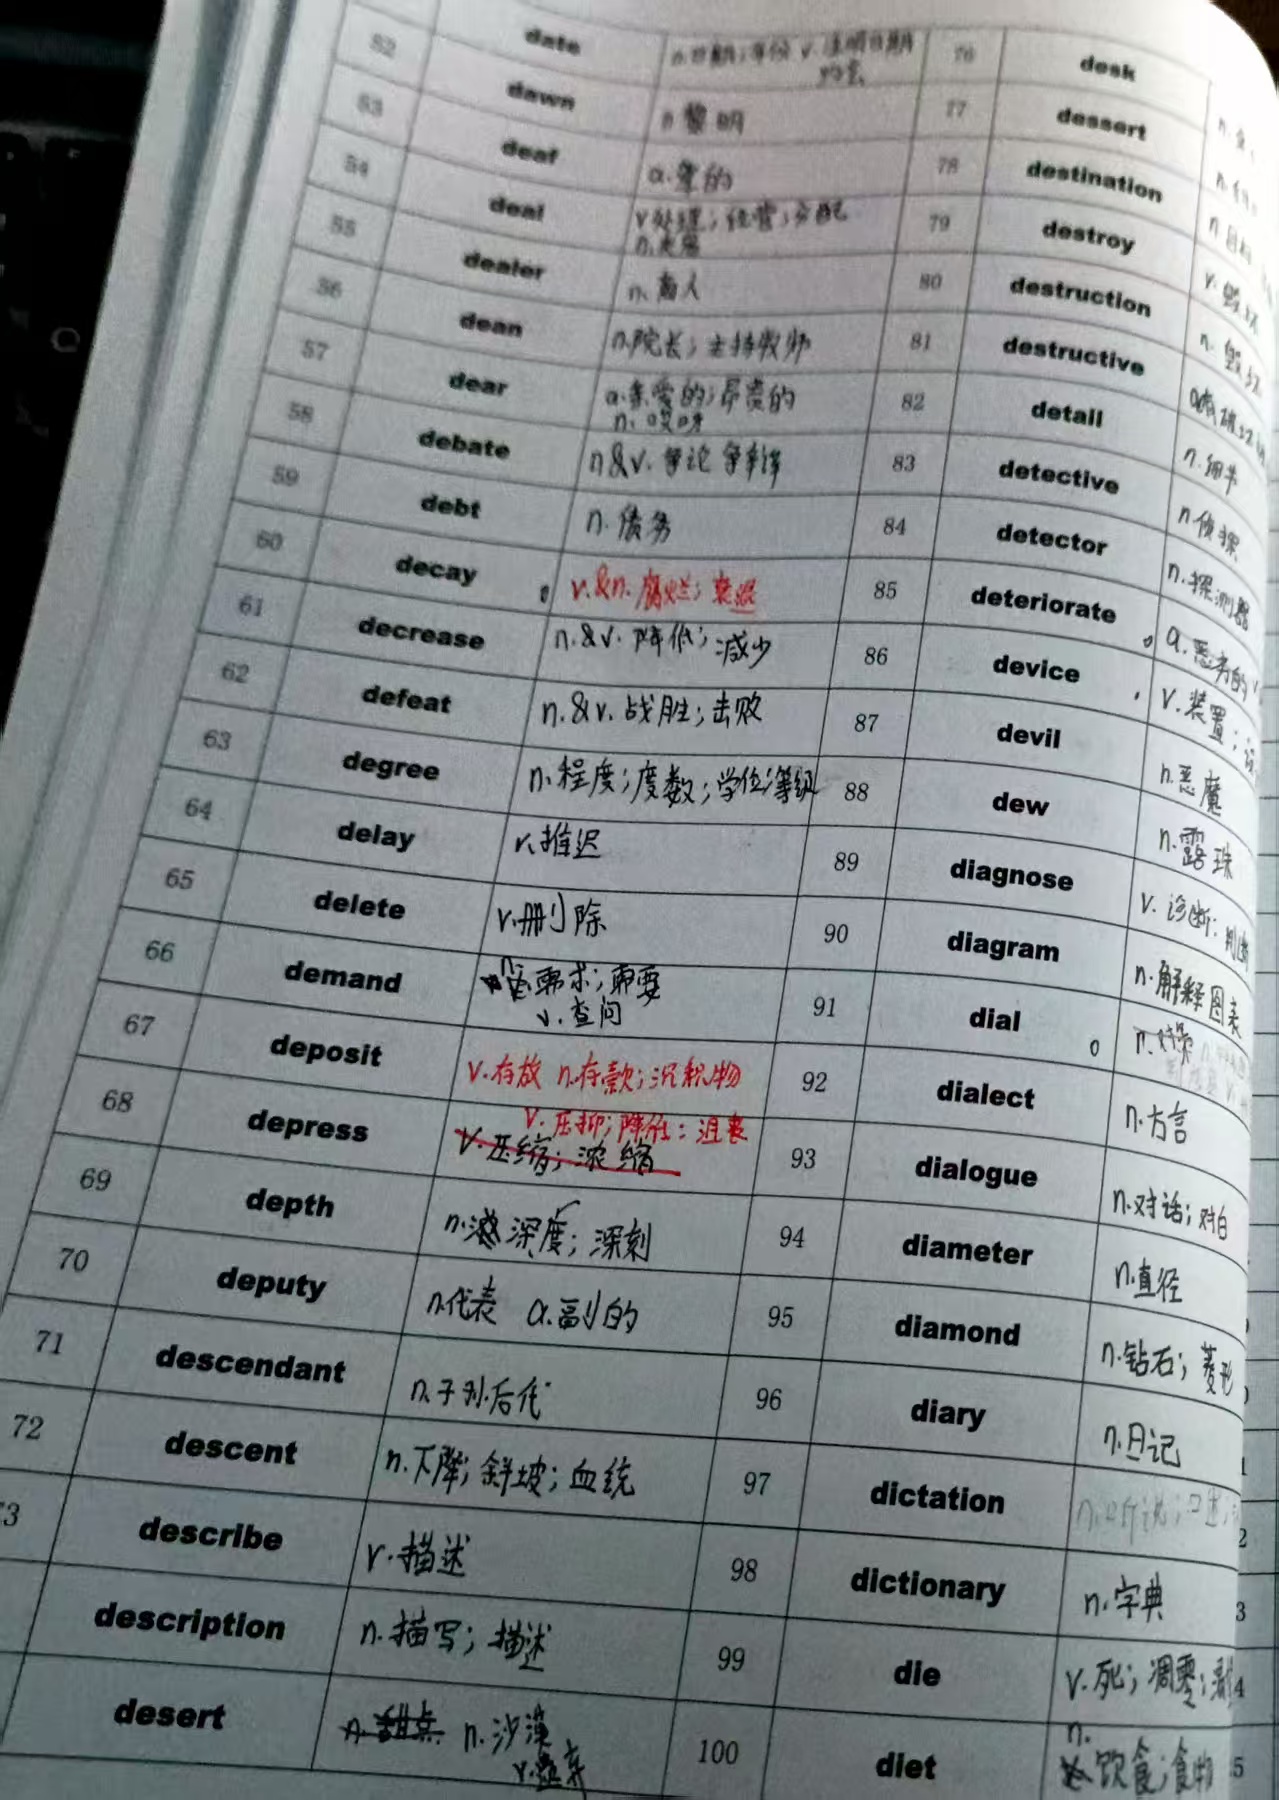 52 date n.日期;年份 v.注明日期
76 desk
53 dawn n.黎明
77 dessert
54 deaf a.聋的
78 destination
55 deal v.处理;经营;分配
79 destroy
56 dealer n.商人
80 destruction
57 dean n.院长;主持教师
81 destructive
58 dear a.亲爱的;昂贵的
n.哎呀
82 detail n.细节
59 debate n&v.争论 争辩
83 detective n.侦探
60 debt n.债务
84 detector n.探测器
61 decay v.&n.腐烂;衰退
85 deteriorate
62 decrease n.&v.降低;减少
86 device v.装置;
63 defeat n.&v.战胜;击败
87 devil n.恶魔
64 degree n.程度;度数;学位;等级
88 dew n.露珠
65 delay v.推迟
89 diagnose v.诊断;判断
66 delete v.删除
90 diagram n.解释图表
67 demand n.需求;需要
v.查问
91 dial
68 deposit v.存放 n.存款;沉积物
92 dialect n.方言
69 depress v.压抑;降低;沮丧
v.压缩;浓缩
93 dialogue n.对话;对白
70 depth n.深度;深刻
94 diameter n.直径
71 deputy n.代表 a.副的
95 diamond n.钻石;菱形
72 descendant n.子孙后代
96 diary n.日记
descent n.下降;斜坡;血统
97 dictation
describe v.描述
98 dictionary n.字典
description n.描写;描述
99 die v.死;凋零;
desert n.甜点 n.沙漠
100 diet n.饮食;食物